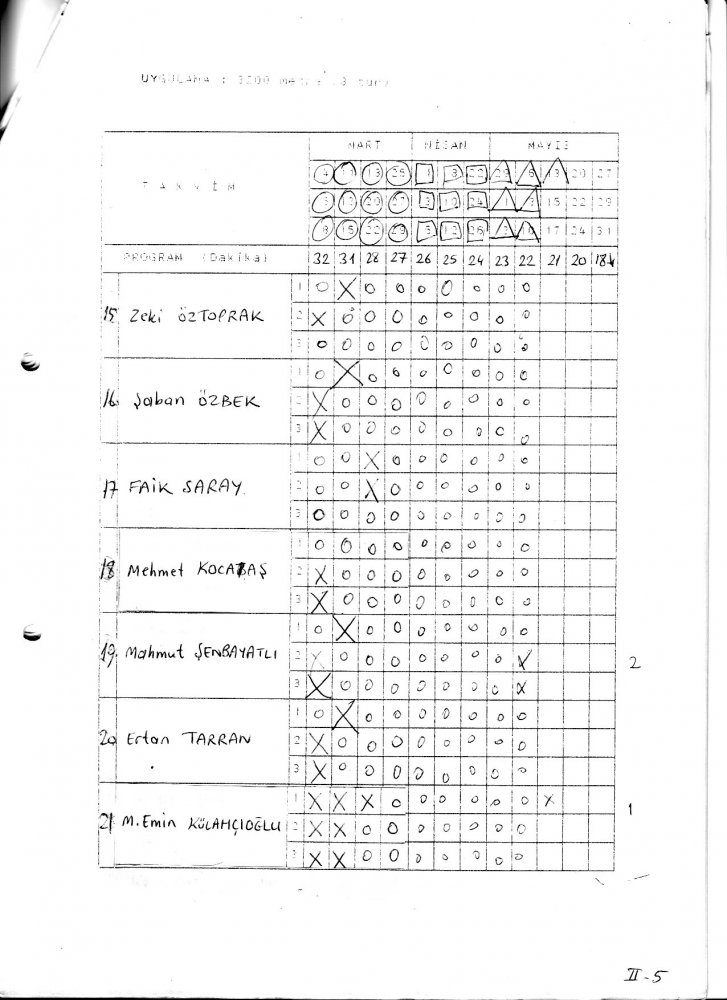 UYGULAMA : 3200 metre
MART NİSAN MAYIS
TAKVİM
4 11 13 25 1 8 22 29 6 13 20 27
20 27 3 10 24 1 15 22 29
8 15 22 29 5 12 26 3 10 17 24 31
PROGRAM (Dakika) 32 31 28 27 26 25 24 23 22 21 20 18
1 O X O O O O O O O
15 Zeki ÖZTOPRAK 2 X O O O O O O O O
3 O O O O O O O O O
1 O X O O O O O O O
16. Şaban ÖZBEK 2 X O O O O O O O O
3 X O O O O O O O O
1 O O X O O O O O O
17 FAİK SARAY 2 O O X O O O O O O
3 O O O O O O O O O
1 O O O O O O O O O
18 Mehmet KOCABAŞ 2 X O O O O O O O O
3 X O O O O O O O O
1 O X O O O O O O O
19. Mahmut ŞENBAYATLI 2 X O O O O O O O X 2
3 X O O O O O O O X
1 O X O O O O O O O
20 Ertan TARRAN 2 X O O O O O O O O
3 X O O O O O O O O
1 X X X O O O O O O X 1
21 M. Emin KÜLAHÇIOĞLU 2 X X O O O O O O O
3 X X O O O O O O O
II-5